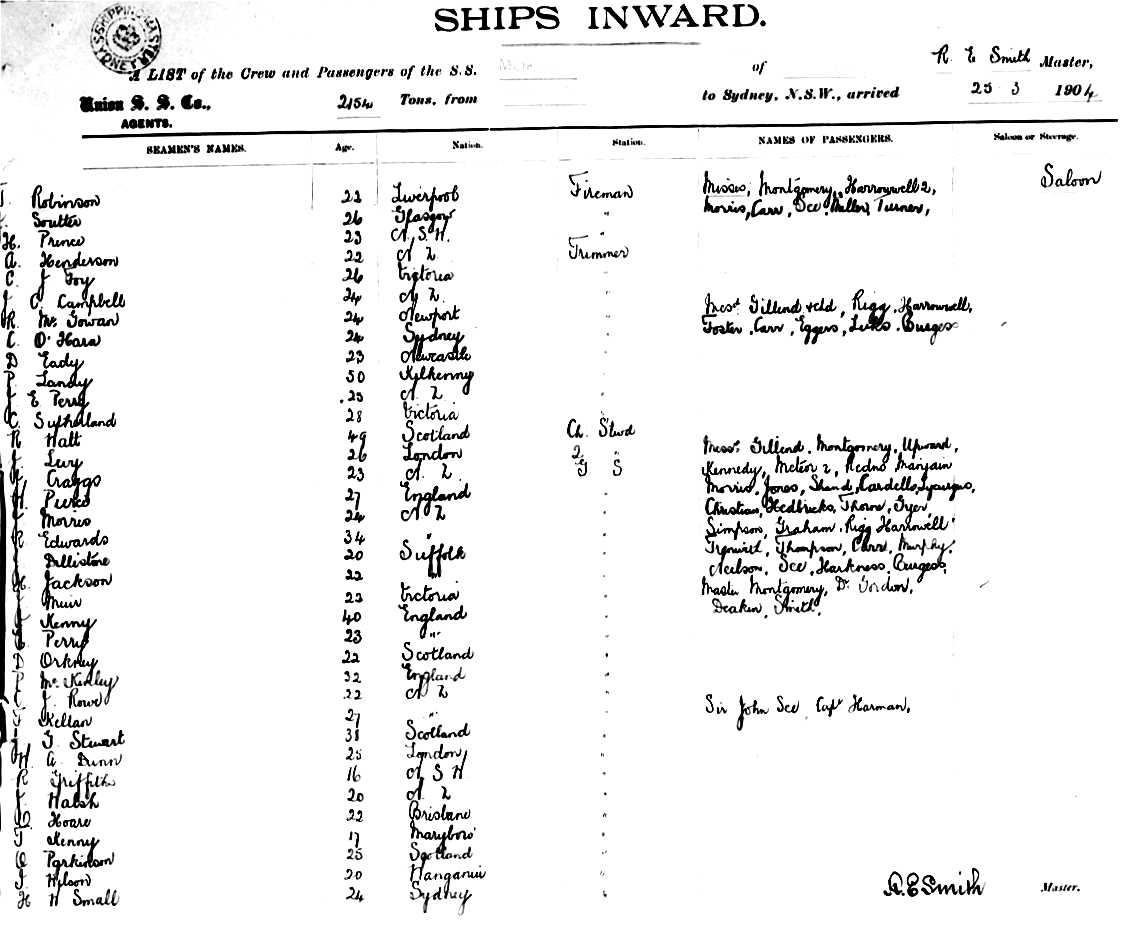 SHIPS INWARD.
SHIPPING MASTER SYDNEY
A LIST of the Crew and Passengers of the S.S. of R E Smith Master,
Union S. S. Co., AGENTS. 2154 Tons, from to Sydney, N.S.W., arrived 25 3 1904
SEAMEN'S NAMES. Age. Nation. Station. NAMES OF PASSENGERS. Saloon or Steerage.
Robinson 22 Liverpool Fireman Misses, Montgomery, Harrowwell 2, Saloon
Soulter 26 Glasgow " Morris, Carr, See, Miller, Turner,
H. Prince 23 N. S. W.
A. Henderson 22 N Z Trimmer
C. J Foy 26 Victoria
J C. Campbell 24 N Z " Mesd Gillend + chd, Rigg, Harrowwell,
R. Mc Gowan 24 Newport " Foster, Carr, Eggers, Burges
C. O'Hara 24 Sydney
D Eady 23 Newcastle
P. Landy 50 Kilkenny
J E Perry 25 N Z
C. Sutherland 28 Victoria "
R Halt 49 Scotland Ch. Stwd
J Levy 26 London 2 " Messrs Gillend, Montgomery, Upward,
Craggs 23 N Z S Kennedy, Meteor 2,
H. 27 England " Morris, Jones, Shand, Cardells,
J Morris 24 N Z " Christian, Hedbricks, Thorne,
R Edwards 34 " Simpson, Graham, Rigg, Harrowell
Dillistone 20 Suffolk " Thompson, Carr, Murphy,
H. Jackson 22 " Neilson, See, Harkness, Burgess,
Muir 23 Victoria " Master Montgomery, Dr Gordon,
J Kenny 40 England " Deakin, Smith,
Perry 23 "
D Orkney 22 Scotland "
P Mc Kinley 32 England "
C J. Rowe 22 N Z "
Kellan 27 " Sir John See, Capt Harman,
J G Stewart 38 Scotland "
H A Dunn 25 London "
R Griffiths 16 N S W "
J Walsh 20 N Z "
Hoare 22 Brisbane "
T Kenny 17 Maryboro' "
O Parkinson 25 Scotland "
J. Wilson 20 Wanganui "
H W Small 24 Sydney "
R. E Smith Master.